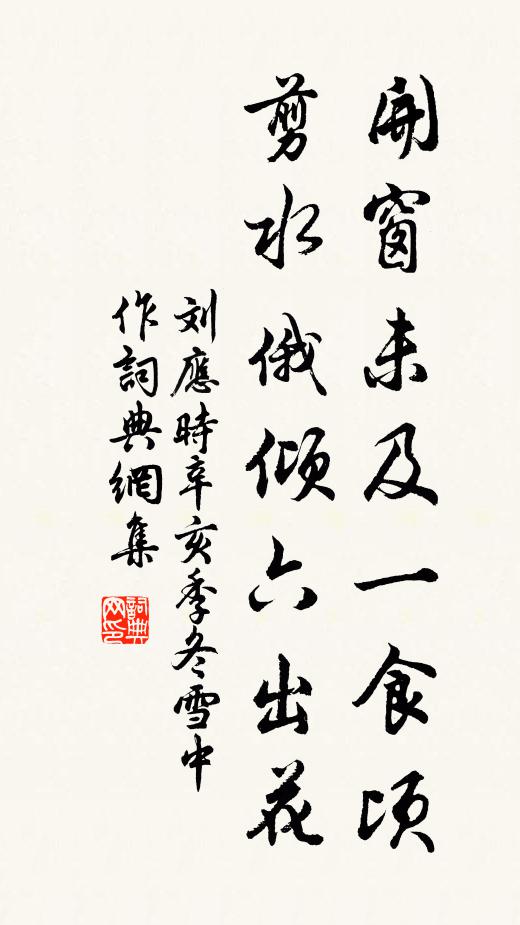 開窗未及一食頃
剪水俄傾六出花
刘應時辛亥季冬雪中
作詞典網集
詞典网印